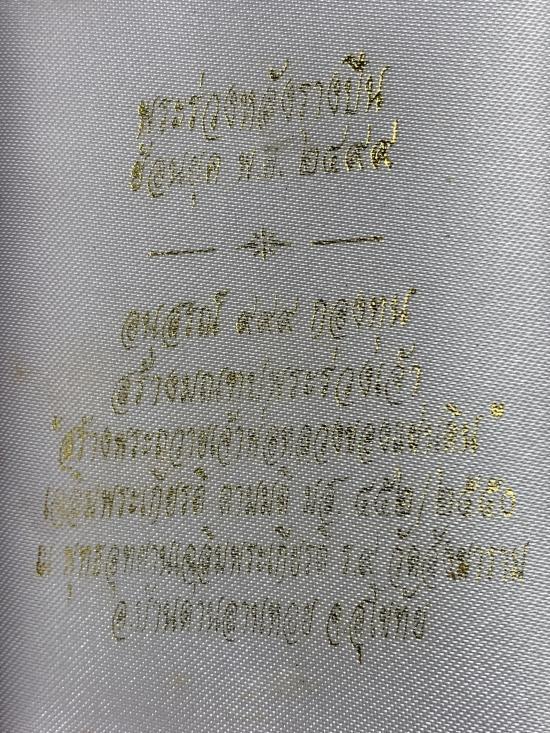 พระร่วงหลังรางปืน
ย้อนยุค พ.ศ. ๒๔๙๙
อนุสรณ์ ๙๙๙ กองทุน
สร้างมณฑปพระร่วงเจ้า
"สร้างพระถวายเจ้าพ่อหลวงของแผ่นดิน"
เฉลิมพระเกียรติ ตามมติ มส. ๔๕๒/๒๕๕๖
ณ พุทธอุทยานเฉลิมพระเกียรติ ร.๙
อ.บ้านด่านลานหอย จ.สุโขทัย